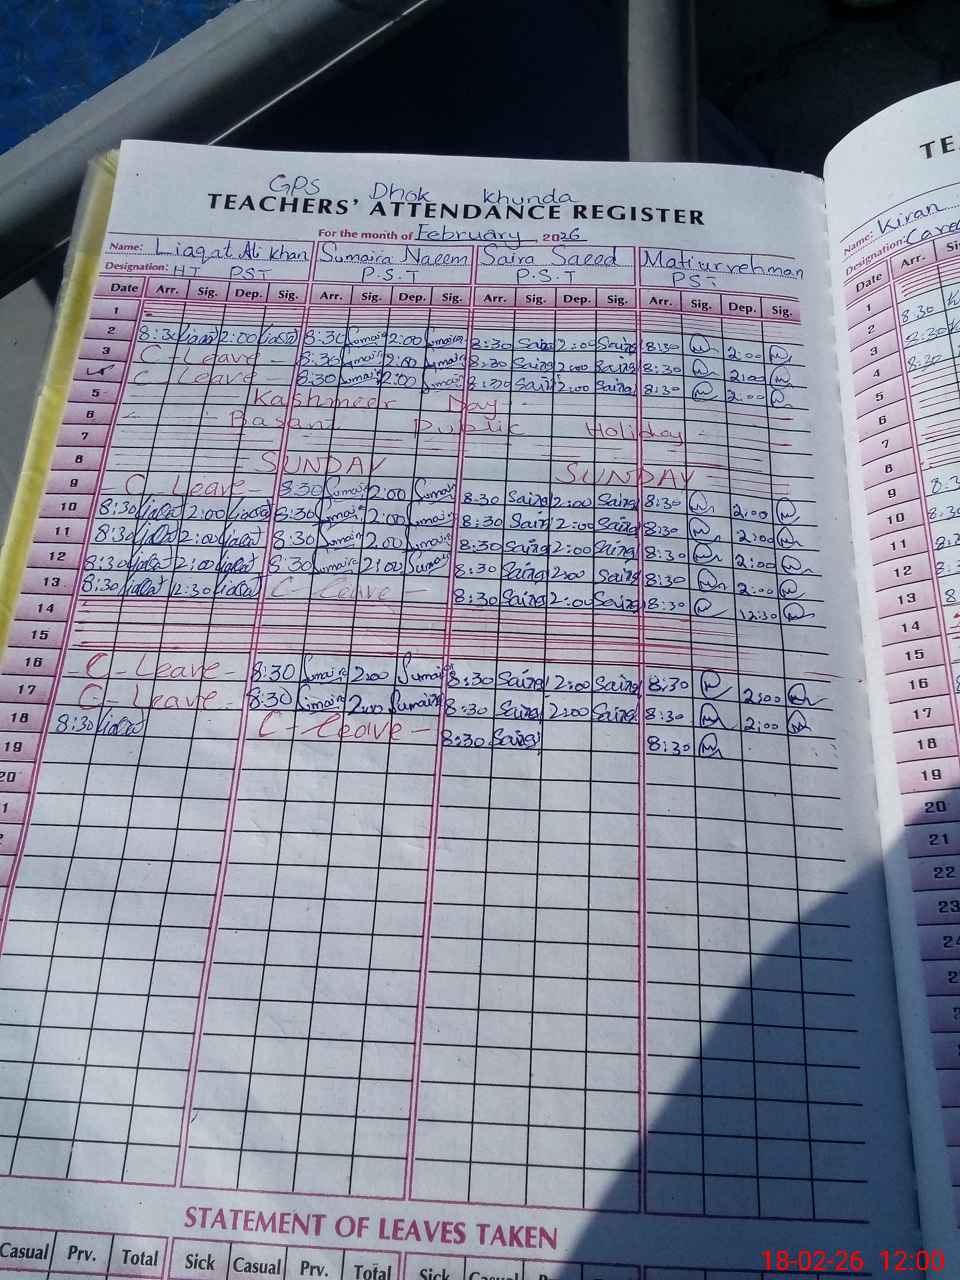 GPS Dhok Khunda
TEACHERS' ATTENDANCE REGISTER
For the month of February 2026
Name: Liaqat Ali Khan Sumaira Naeem Saira Saeed Matiurrehman
Designation: HT PST P.S.T P.S.T PST
Date Arr. Sig. Dep. Sig. Arr. Sig. Dep. Sig. Arr. Sig. Dep. Sig. Arr. Sig. Dep. Sig.
1
2 8:30 2:00 8:30 Sumaira 2:00 Sumaira 8:30 Saira 2:00 Saira 8:30 2:00
3 C-Leave- 8:30 Sumaira 2:00 Sumaira 8:30 Saira 2:00 Saira 8:30 2:00
4 C-Leave- 8:30 Sumaira 2:00 Sumaira 8:30 Saira 2:00 Saira 8:30 2:00
5 Kashmeer Day
6 Basant Public Holiday
7
8 SUNDAY SUNDAY
9 C Leave- 8:30 Sumaira 2:00 Sumaira 8:30 Saira 2:00 Saira 8:30 2:00
10 8:30 2:00 8:30 Sumaira 2:00 Sumaira 8:30 Saira 2:00 Saira 8:30 2:00
11 8:30 2:00 8:30 Sumaira 2:00 Sumaira 8:30 Saira 2:00 Saira 8:30 2:00
12 8:30 2:00 8:30 Sumaira 2:00 Sumaira 8:30 Saira 2:00 Saira 8:30 2:00
13 8:30 12:30 C-Leave- 8:30 Saira 2:00 Saira 8:30 12:30
14
15
16 C-Leave- 8:30 Sumaira 2:00 Sumaira 8:30 Saira 2:00 Saira 8:30 2:00
17 C-Leave- 8:30 Sumaira 2:00 Sumaira 8:30 Saira 2:00 Saira 8:30 2:00
18 8:30 C-Leave- 8:30 Saira 8:30
19
20
STATEMENT OF LEAVES TAKEN
Casual Prv. Total Sick Casual Prv. Total Sick Casual
Name: Kiran
Designation:
Date Arr.
1
2 8:30
3 8:30
4 8:30
5
6
7
8
9
10 8:30
11
12
13
14
15
16
17
18
19
20
21
22
23
18-02-26 12:00